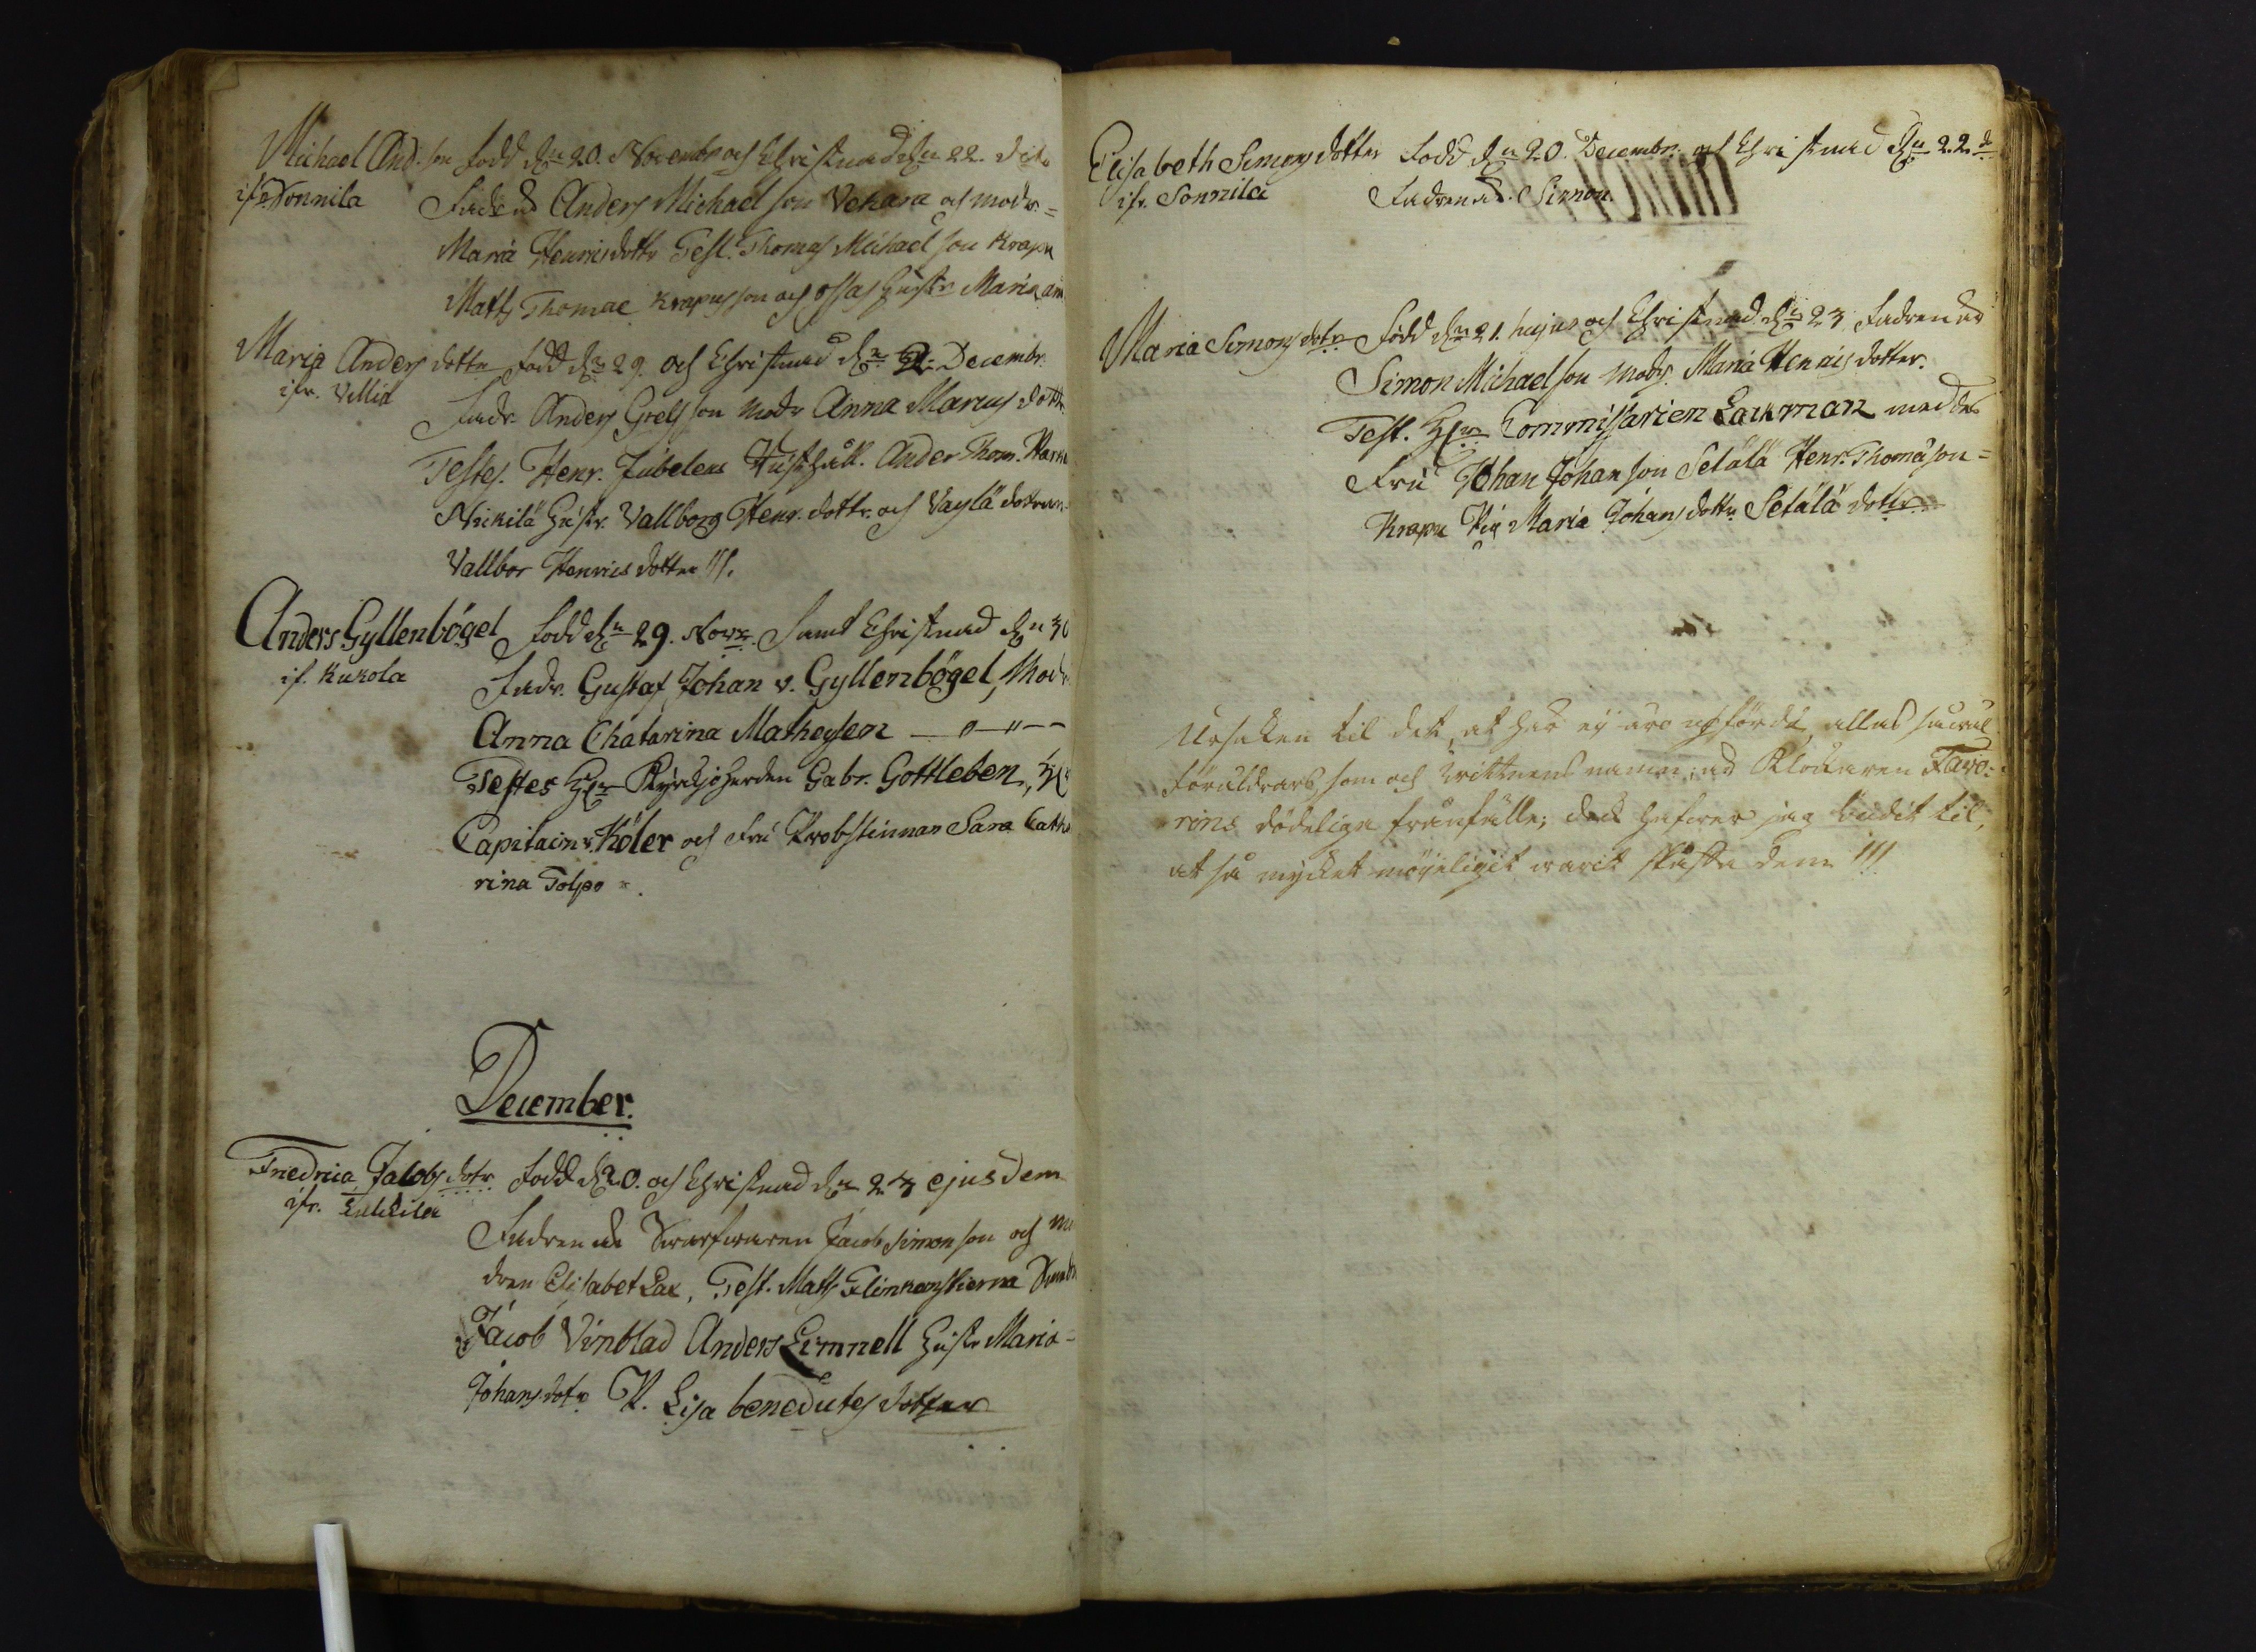 Michael And.son född d:n 20. Novembr och Christnad d:n 22. dito
ifr. Sonnila Fadr. är Anders Michaelson Vekara och modr.=
Maria Henricsdottr Test. Thomas Michaelson Krapu
Matts Thomae Krapusson och hustr. Maria
Maria Andersdotter född d:n 29. och Christnad d:n 2. Decembr.
ifr. Villiä
Fadr. Anders Grelsson Modr Anna Marcusdottr.
Testes. Henr. Jubelens Anders Thom.
Nickilä hustr. Vallborg Henr.dottr. och Vaylä dottren
Vallbor Henricsdotter
Anders Gyllenbögel född d:n 29. Novr. samt Christnad d:n 30
if. Kukola
Fadr. Gustaf Johan v. Gyllenbögel, Modr.
Anna Chatarina Matheysen
Testes H:r Kyrckjoherden Gabr. Gottleben, H:r
Capitain v. Köler och Fru Probstinnan Sara Catha
rina Tolpo.
December.
Friedrica Jacobsdotr född d. 20. och Christnad d:n 23 ejusdem
ifr.
Fadren är Swarfwaren Jacob Simonson och mo
dren Elisabet Lax, Test. Matts
Jacob Vinblad Anders Limnell hustr Maria
Johansdotr P. Lisa benedictsdotter
Elisabeth Simonsdotter född d:n 20. Decembr. och Christnad d:n 22. d:o
ifr. Sonnila Fadren är. Simon.
Maria Simonsdotr född d:n 21. hujus och Christnad d:n 23 Fadren är
Simon Michaelson Modr. Maria Henricsdotter.
Test. H:r Commissarien Lackman med des
Fru Johan Johanson Setälä Henr. Thomasson=
Krapu Pig Maria Johansdottr Setälä dottr
Orsaken til det, at här ej äro upförde, allas säväl
föräldrars, som och wittnens namn, är Klockaren Favo=
rins dödeliga frånfälle; dock hafwer jag budit til,
at så mycket möjeligit warit skaffa dem !!!